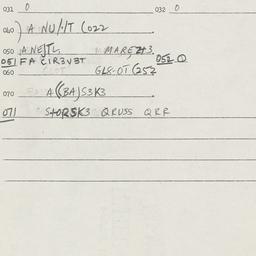 031 0 032 0
040 ) A NU/-/T (022
050 ANE)TL MAREZ+3
051 FA CIR3V3T 052 0
060 GL8-OT (25Z
070 A((BA)S3K3
071 S+OR5K3 QRUSS QRF